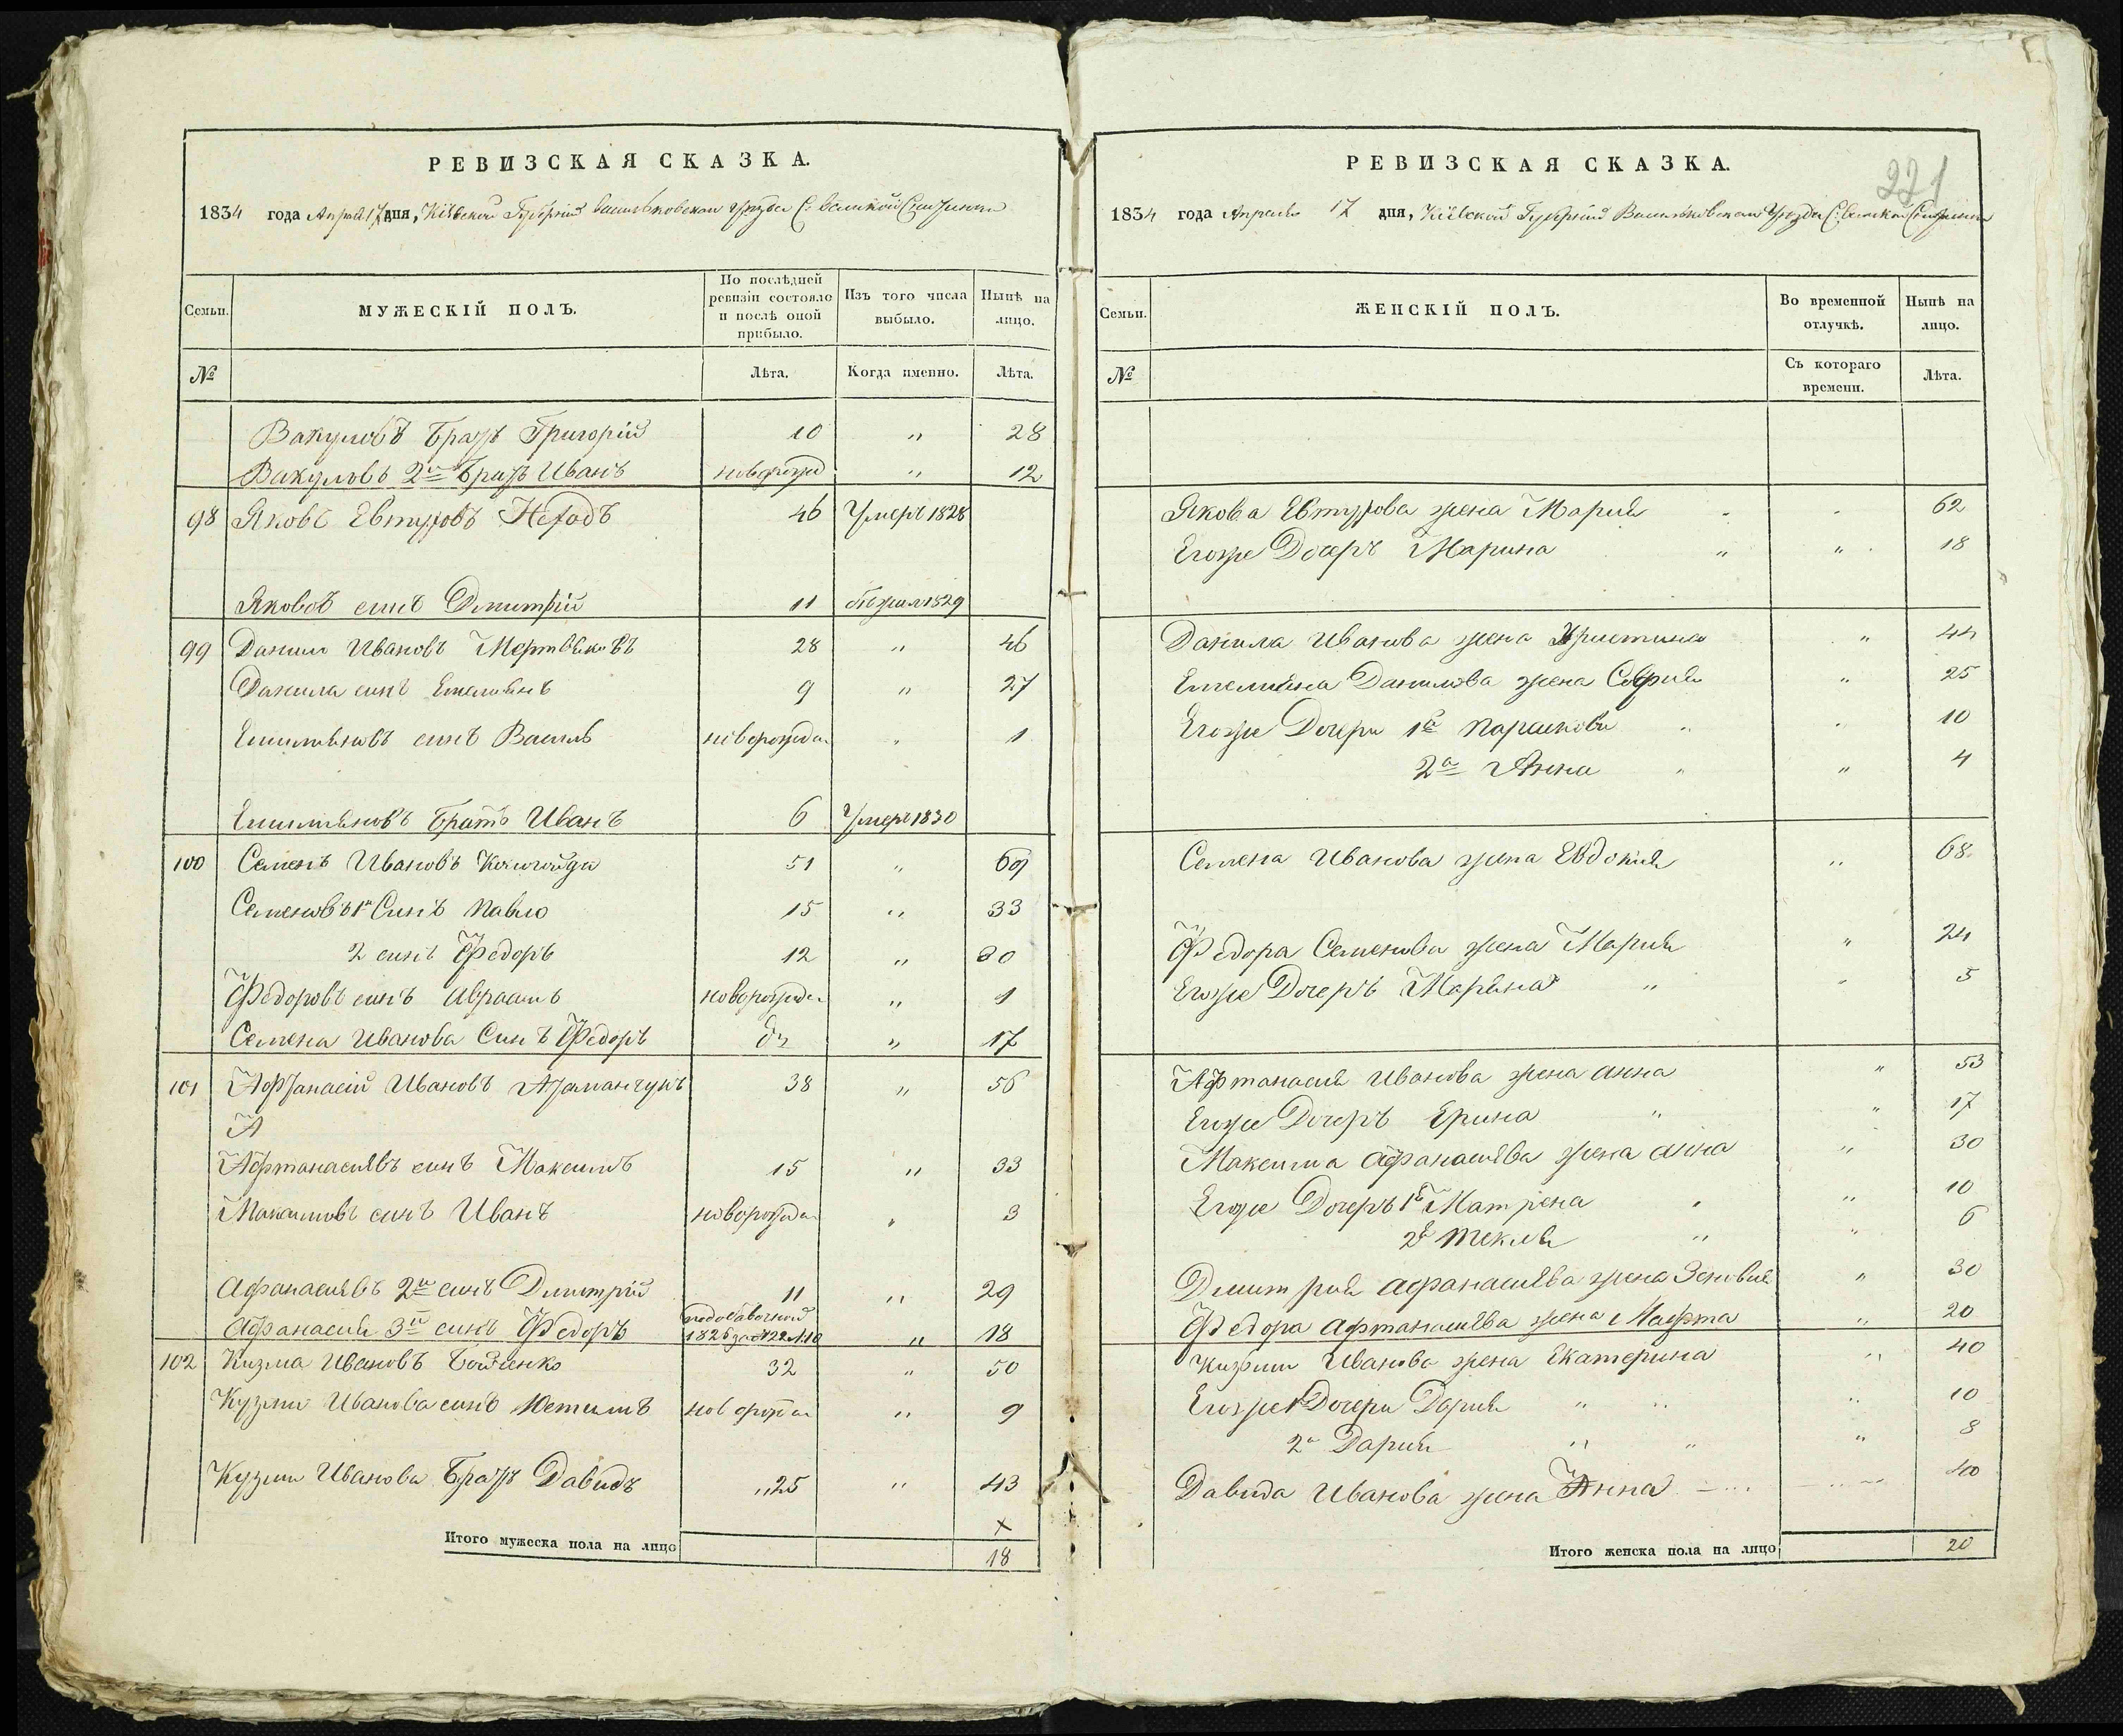 РЕВИЗСКАЯ СКАЗКА.
1834 года Апреля 17 дня, Кіевской Губерніи Васильковскаго уезда С: великой
Семьи.
МУЖЕСКІЙ ПОЛЪ.
По послѣдней ревизіи состояло и послѣ оной прибыло.
Изъ того числа выбыло.
Нынѣ на лицо.
№
Лѣта.
Когда именно.
Лѣта.
Вакуловъ братъ Григорій 10 " 28
Вакуловъ 2й братъ Иванъ новорожд " 12
98 Яковъ Евтуховъ 46 Умеръ 1828
Яковов синъ Дмитрій 11 бѣжал 1829
99 Данило Ивановъ 28 " 46
Данила синъ Емельянъ 9 " 27
Емильяновъ синъ Василь новорожден " 1
Емильяновъ братъ Иванъ 6 Умеръ 1830
100 Семенъ Ивановъ 51 " 69
Семеновъ 1й Синъ Павло 15 " 33
2 синъ Федоръ 12 " 30
Федоровъ синъ Авраамъ новорожден " 1
Семена Иванова Синъ Федоръ " 17
101 Афтанасій Ивановъ 38 " 56
А
Афтанасиевъ синъ Максимъ 15 " 33
Максимовъ синъ Иванъ новорожден " 3
Афанасиевъ 2й синъ Дмитрій 11 " 29
Афанасия 3й синъ Федоръ 1826 " 18
102 Кизма Ивановъ 32 " 50
Кузми Иванова синъ новорожден " 9
Кузми Иванова братъ Давидъ " 25 " 43
х
Итого мужеска пола на лицо 18
221
РЕВИЗСКАЯ СКАЗКА.
1834 года Апреля 17 дня, Кіевской Губерніи Васильковскаго Уезда С: великой
Семьи.
ЖЕНСКІЙ ПОЛЪ.
Во временной отлучкѣ.
Нынѣ на лицо.
№
Съ котораго времени.
Лѣта.
Якова Евтухова жена Мария " 62
Егоже Дочеръ Марина " " 18
Данила Иванова жена Христина " 44
Емельяна Данилова жена София " 25
Егоже Дочери 1я Парасковия " " 10
2я Анна " " 4
Семена Иванова жена Евдокия " 68
Федора Семенова жена Мария " 24
Егоже Дочеръ Маряна " " 5
Афтанасия Иванова жена анна " 53
Егоже Дочеръ Ерина " " 17
Максима афанасиева жена анна " 30
Егоже Дочеръ 1я Матрена " " 10
2я Текля " " 6
Дмитрия афанасиева жена Зеновия " 30
Федора афтанасиева жена Марфта " 20
Кизми Иванова жена Екатерина " 40
Егоже 1 Дочери Дария " " 10
2я Дария " " " 8
Давида Иванова жена Анна 40
Итого женска пола на лицо 20